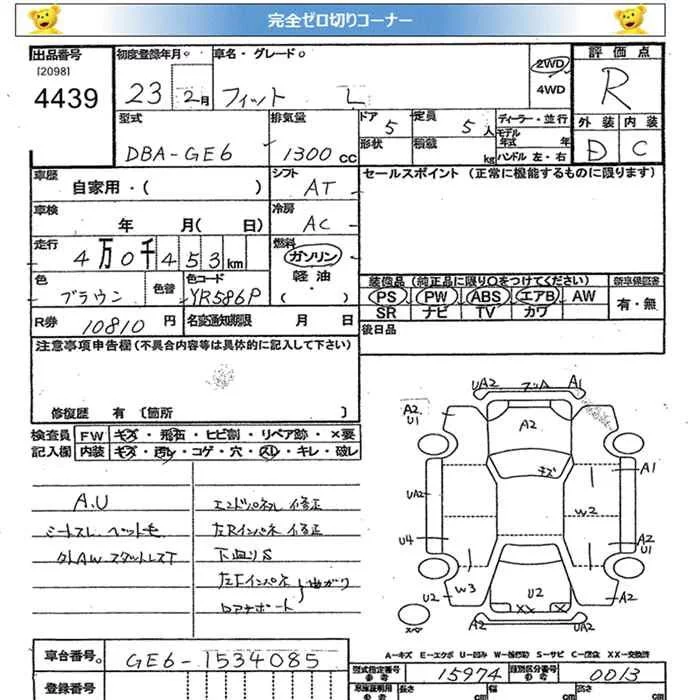 完全ゼロ切りコーナー
出品番号
[2098]
4439
初度登録年月
23 2月
車名・グレード
フィット L
2WD
4WD
評価点
R
外装 内装
D C
型式
DBA-GE6
排気量
1300 cc
ドア 5
形状
定員 5 人
積載 kg
ディーラー・並行
モデル年式 年
ハンドル 左・右
車歴
自家用・( )
シフト
AT
セールスポイント (正常に機能するものに限ります)
車検
年 月( 日)
冷房
AC
走行
4万0千453km
燃料
ガソリン
・
軽油
( )
色
ブラウン
色替
色コード
YR586P
装備品 (純正品に限り○をつけてください)
PS PW ABS エアB AW
SR ナビ TV カワ
新車保証書
有・無
R券 10810 円
名変通知期限 月 日
後日品
注意事項申告欄 (不具合内容等は具体的に記入して下さい)
修復歴 有 [箇所 ]
検査員
記入欄
FW キズ・飛石・ヒビ割・リペア跡・×要
内装 キズ・汚レ・コゲ・穴・スレ・キレ・破レ
A.U
シートスレ ペット毛
外AW スタットレスT
エンドパネル 修正
左Rインパネ 修正
下廻りS
左Fインパネ
コアサポート
曲がり
UA2 A1
A2
U1
A2
キズ
A1
UA2
W2
U4
A2
U1
W3
U2
U2
XX X
A2
UA2
スペア
A-キズ E-エクボ U-凹み W-補修跡 S-サビ C-腐食 XX-交換済
車台番号
GE6-1534085
型式指定番号
参考
15974
類別区分番号
参考
0013
登録番号
車庫証明用
参考
長さ cm
幅 cm
高さ cm